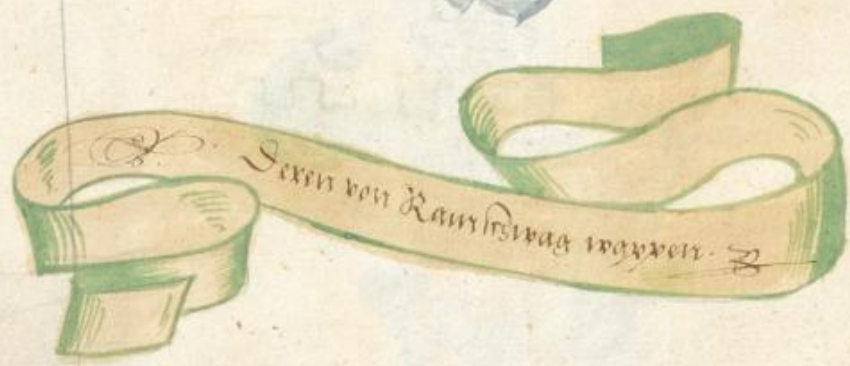 Deren von Ramschwag wappen.